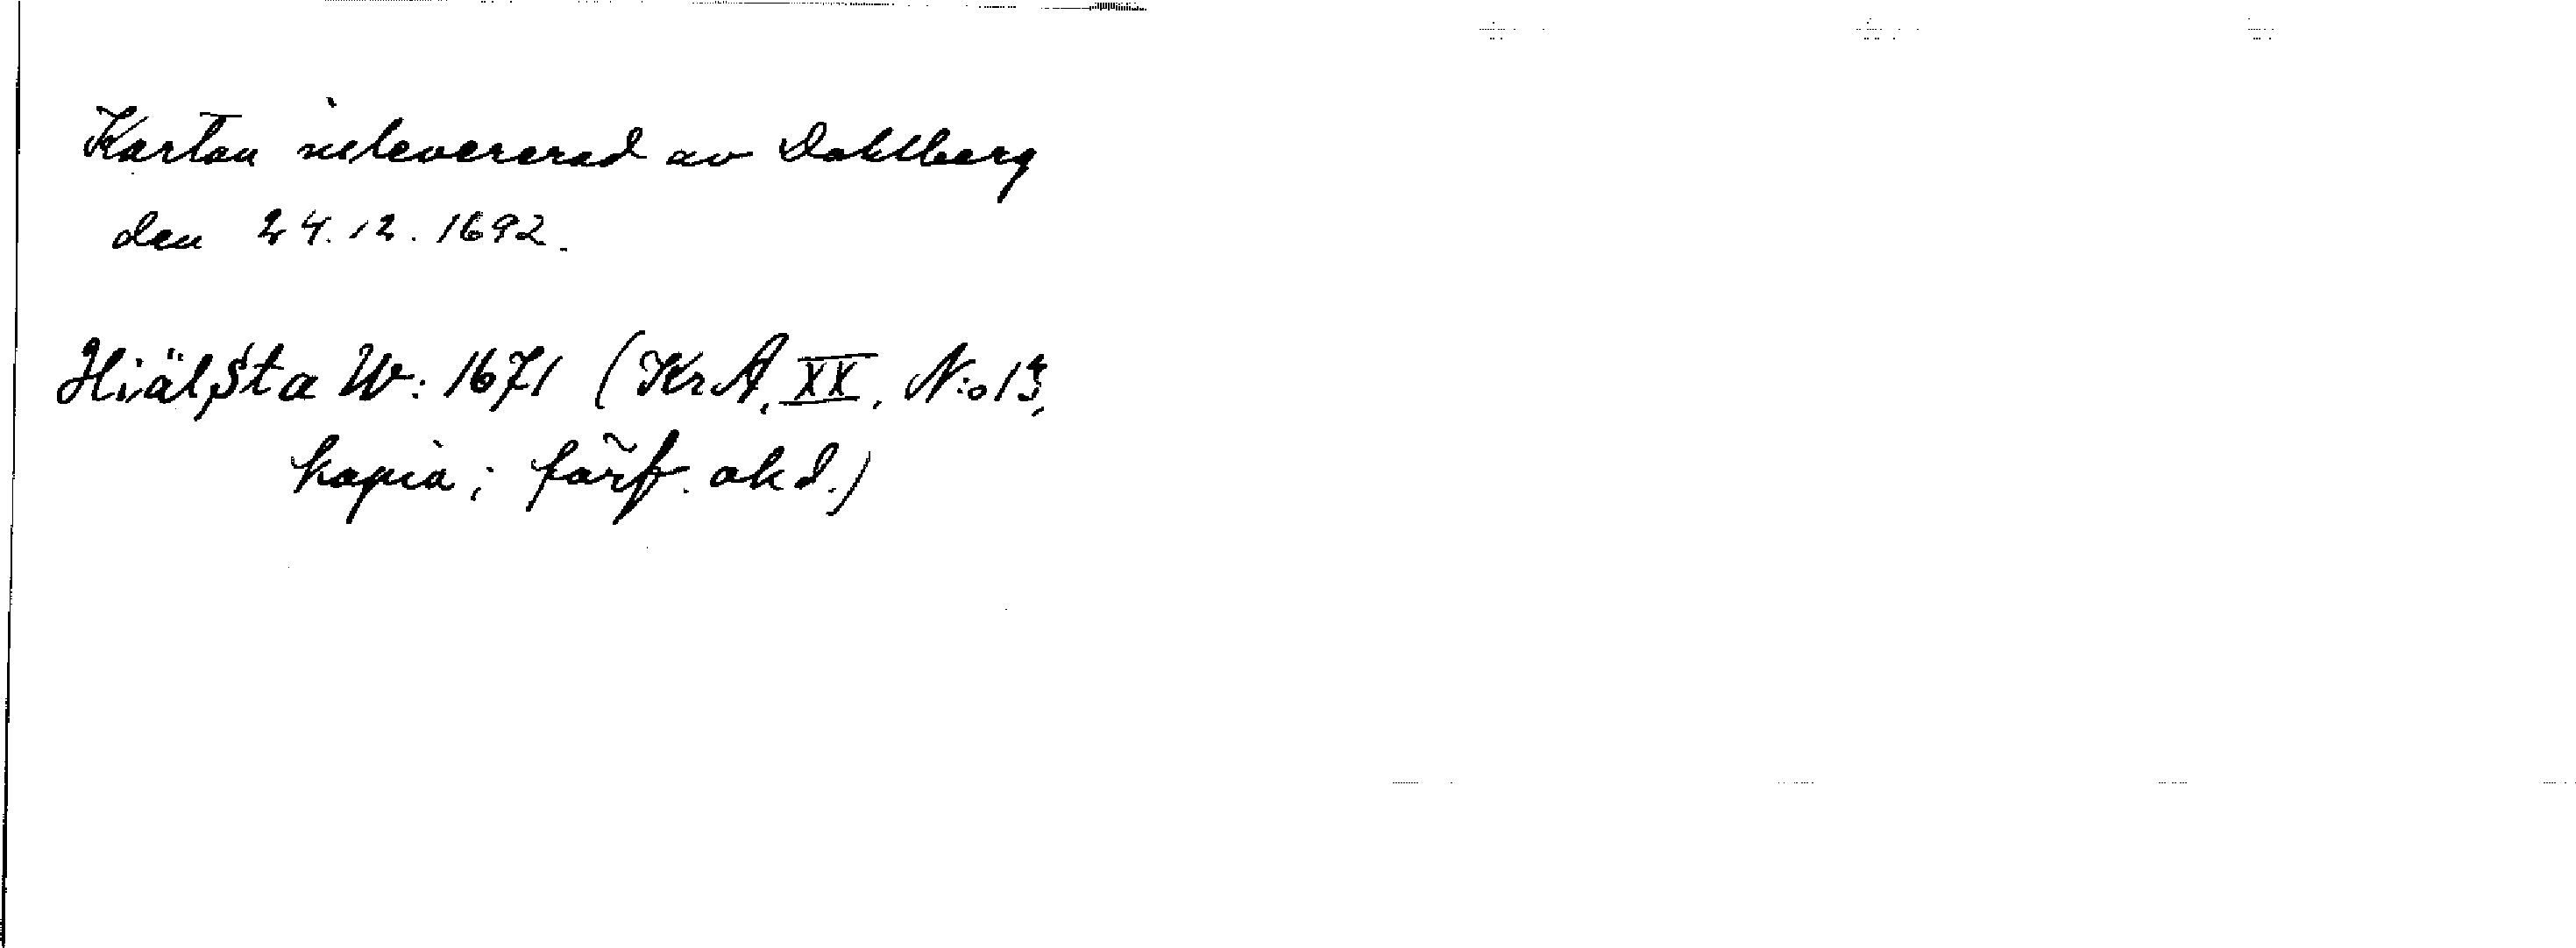 Kartan inlevererad av Dahlberg
den 24.12.1692.
Hiälsta W: 1671 (KrA, XX, N:o 13,
kopia; förf. okd.)